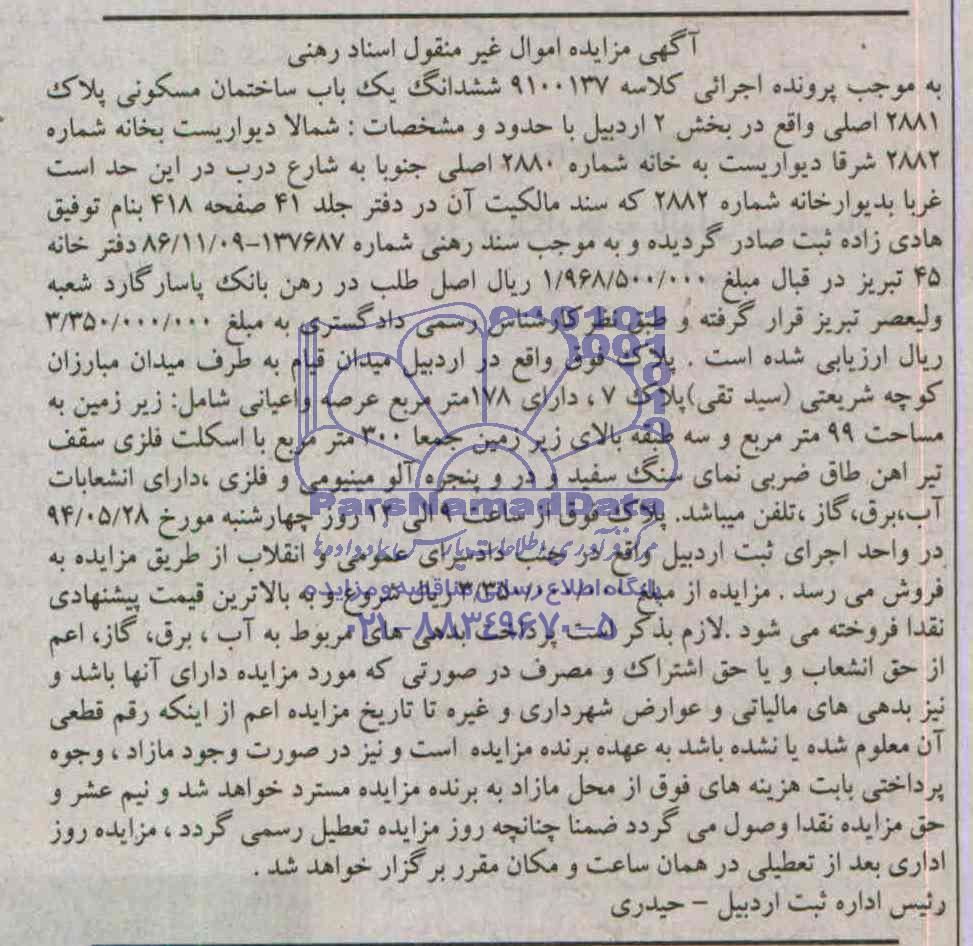 آگهی مزایده اموال غیر منقول اسناد رهنی
به موجب پرونده اجرائی کلاسه ۹۱۰۰۱۳۷ ششدانگ یک باب ساختمان مسکونی پلاک
۲۸۸۱ اصلی واقع در بخش ۲ اردبیل با حدود و مشخصات : شمالا دیواریست بخانه شماره
۲۸۸۲ شرقا دیواریست به خانه شماره ۲۸۸۰ اصلی جنوبا به شارع درب در این حد است
غربا بدیوارخانه شماره ۲۸۸۲ که سند مالکیت آن در دفتر جلد ۴۱ صفحه ۴۱۸ بنام توفیق
هادی زاده ثبت صادر گردیده و به موجب سند رهنی شماره ۱۳۷۶۸۷-۸۶/۱۱/۰۹ دفتر خانه
۴۵ تبریز در قبال مبلغ ۱/۹۶۸/۵۰۰/۰۰۰ ریال اصل طلب در رهن بانک پاسارگارد شعبه
ولیعصر تبریز قرار گرفته و طبق نظر کارشناس رسمی دادگستری به مبلغ ۳/۳۵۰/۰۰۰/۰۰۰
ریال ارزیابی شده است . پلاک فوق واقع در اردبیل میدان قیام به طرف میدان مبارزان
کوچه شریعتی (سید تقی)پلاک ۷ ، دارای ۱۷۸متر مربع عرصه واعیانی شامل: زیر زمین به
مساحت ۹۹ متر مربع و سه طبقه بالای زیر زمین جمعا ۳۰۰ متر مربع با اسکلت فلزی سقف
تیر اهن طاق ضربی نمای سنگ سفید و در و پنجره آلو مینیومی و فلزی ،دارای انشعابات
آب،برق،گاز ،تلفن میباشد. پلاک فوق از ساعت ۹ الی ۱۲ روز چهارشنبه مورخ ۹۴/۰۵/۲۸
در واحد اجرای ثبت اردبیل واقع در جنب دادسرای عمومی و انقلاب از طریق مزایده به
فروش می رسد . مزایده از مبلغ ۳/۳۵۰/۰۰۰/۰۰۰ ریال شروع و به بالاترین قیمت پیشنهادی
نقدا فروخته می شود .لازم بذکر است پرداخت بدهی های مربوط به آب ، برق، گاز، اعم
از حق انشعاب و یا حق اشتراک و مصرف در صورتی که مورد مزایده دارای آنها باشد و
نیز بدهی های مالیاتی و عوارض شهرداری و غیره تا تاریخ مزایده اعم از اینکه رقم قطعی
آن معلوم شده یا نشده باشد به عهده برنده مزایده است و نیز در صورت وجود مازاد ، وجوه
پرداختی بابت هزینه های فوق از محل مازاد به برنده مزایده مسترد خواهد شد و نیم عشر و
حق مزایده نقدا وصول می گردد ضمنا چنانچه روز مزایده تعطیل رسمی گردد ، مزایده روز
اداری بعد از تعطیلی در همان ساعت و مکان مقرر برگزار خواهد شد .
رئیس اداره ثبت اردبیل - حیدری
ParsNamadData
مرکز فرآوری اطلاعات پارس نماد داده‌ها
پایگاه اطلاع رسانی مناقصه و مزایده
۰۲۱-۸۸۳۴۹۶۷۰-۵